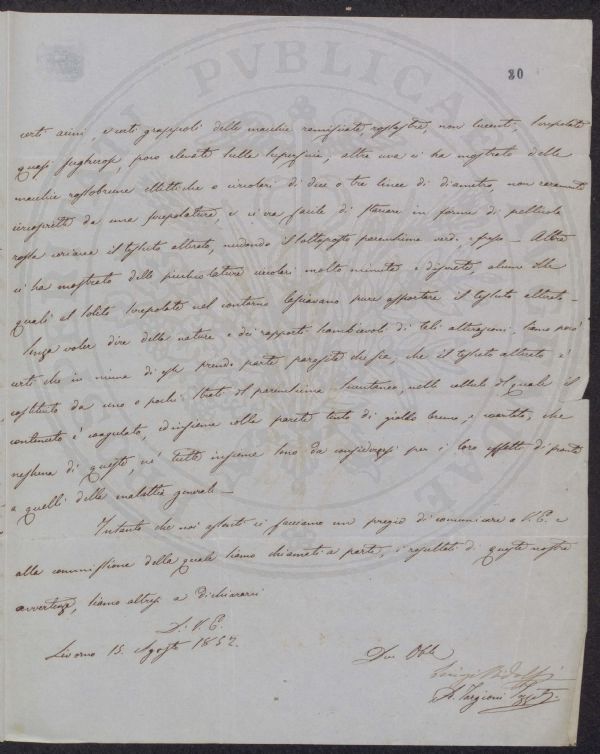 20
certi acini, e certi grappoli delle macchie ramificate rossastre, non lucenti, screpolate
quasi sugherose, poco elevate sulla superficie, altre uva ci ha mostrato delle
macchie rossobrune ellittiche o circolari di due o tre linee di diametro, non raramente
circoscritte da una screpolatura, e ci era facile di staccare in forma di pellicola
rossa coriacea il tessuto alterato, mettendo il sottoposto parenchima verde. Altre
ci ha mostrato delle picchiolature circolari molto minute e discrete, alcune delle
quali al solito screpolate nel contorno lasciavano pure asportare il tessuto alterato —
Senza voler dire della natura e dei rapporti scambievoli di tali alterazioni siamo però
certi che in niuna di esse prende parte parassita che sia, che il tessuto alterato è
costituto da uno o pochi strati del parenchima succutaneo, nelle cellule del quale il
contenuto è coagulato, ed insieme colla parete tinto di giallo bruno, e contratto, che
neghena di queste, nè tutte insieme sono da considerarsi per i loro effetti di fronte
a quelli della malattia generale —
Intanto che noi assenti ci facciamo un pregio di comunicare a V.E. e
alla commissione della quale siamo chiamati a parte, i resultati di queste nostre
avvertenze, siamo altresì a dichiararci
Di V.E.
Livorno 15. Agosto 1852.
Dev Obb
Luigi Ridolfi
A. Targioni Tozzetti